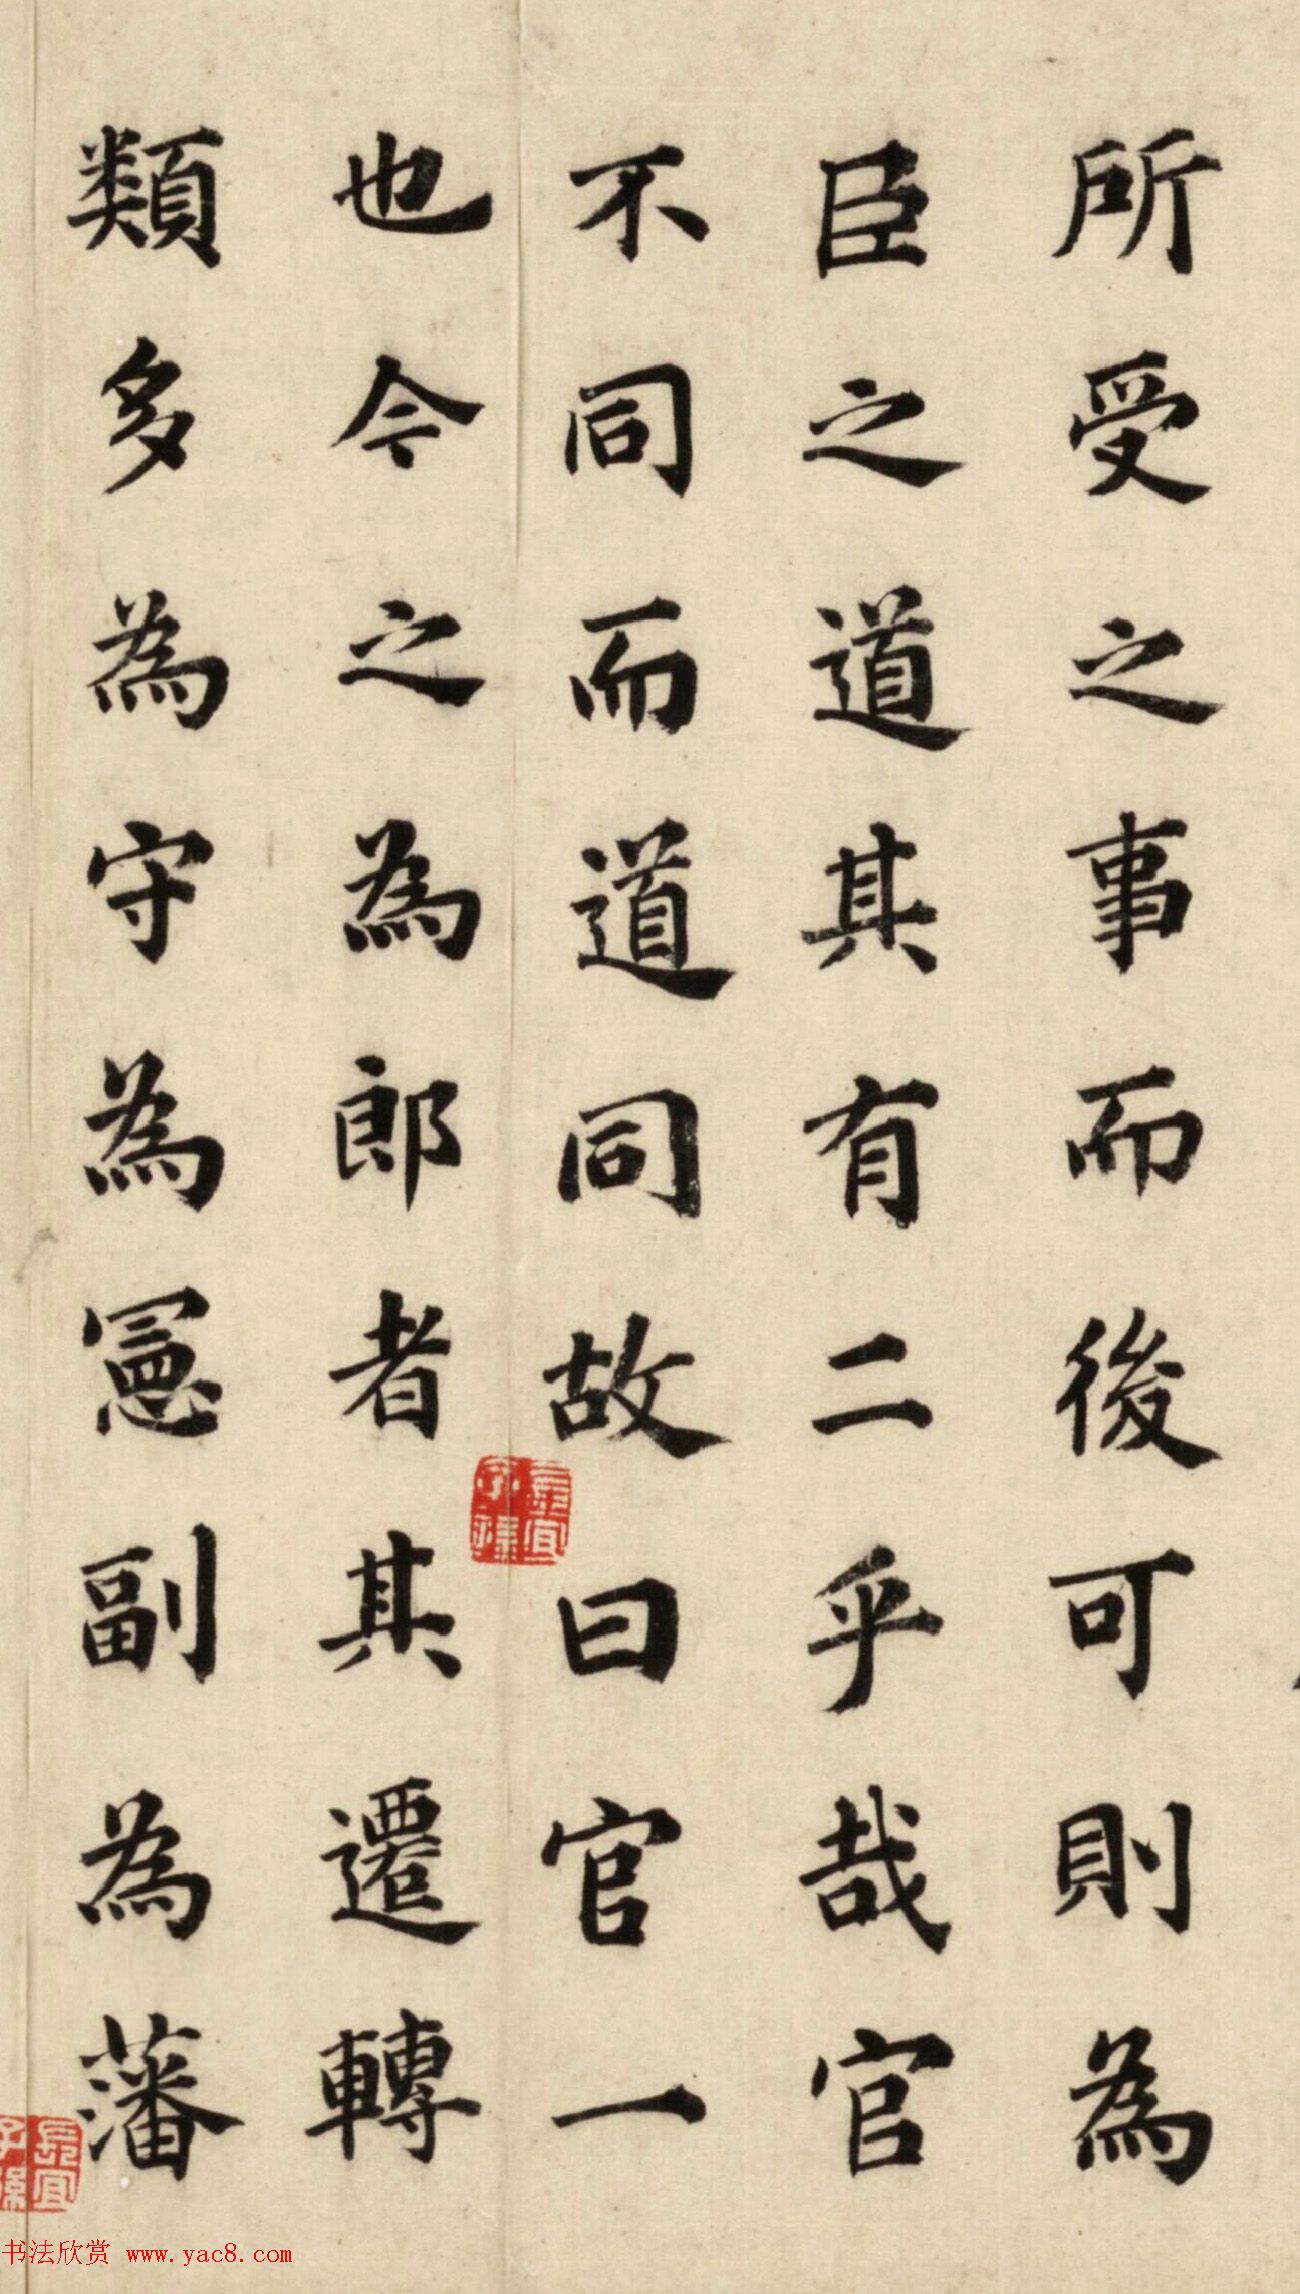 所受之事而後可則為
臣之道其有二乎哉官
不同而道同故曰官一
也今之為郎者其遷轉
類多為守為憲副為藩
長宜子孫
长宜子孫
书法欣赏 www.yac8.com